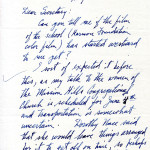 Dear Secretary
Can you tell me if the film
of the school (Harmon Foundation
color film) has started westward
to me yet?
I sort of expected it before
this, as my talk to the women of
the Mission Hills Congregational
Church is scheduled for June
and transportation is somewhat
uncertain. Dorothy said
that she would have things arranged
for it to get old on time, so perhaps